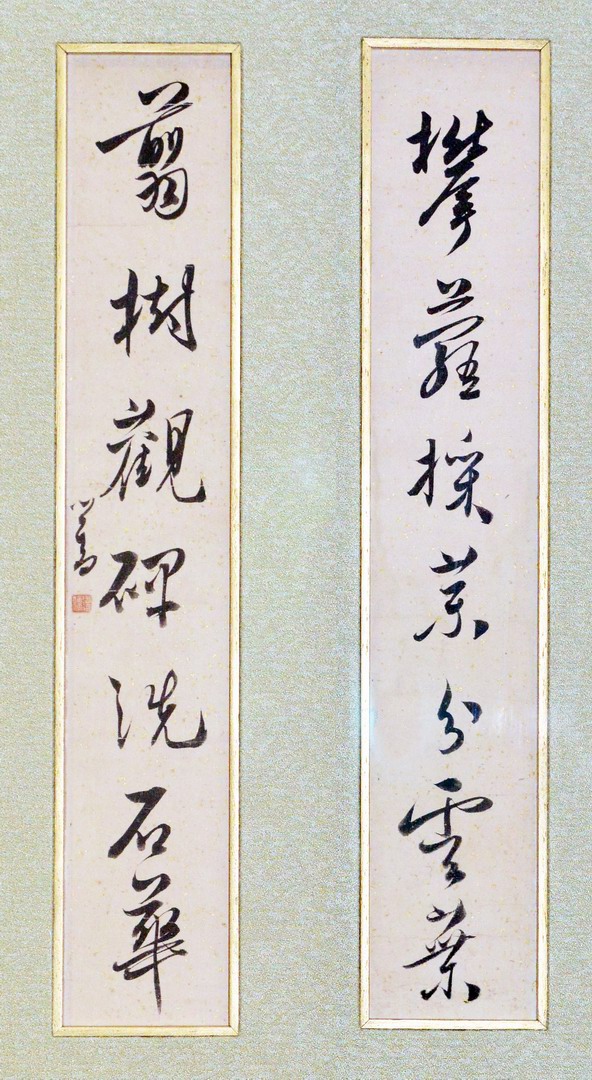 攀蘿採藥分雲葉
翦樹觀碑洗石華
心畬